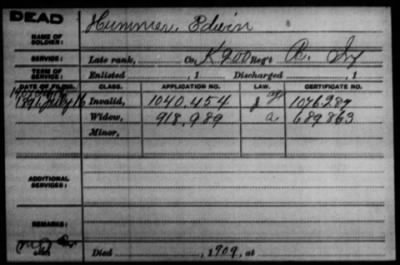 DEAD
Hummer, Edwin
NAME OF SOLDIER:
SERVICE: Late rank, Co. K 900 Reg't
TERM OF SERVICE: Enlisted , 1 Discharged , 1
DATE OF FILING. CLASS. APPLICATION NO. LAW. CERTIFICATE NO.
1891 July 16 Invalid, 1040.454 1076287
Widow, 918.989 689863
Minor,
ADDITIONAL SERVICES:
REMARKS:
Died , 1909, at